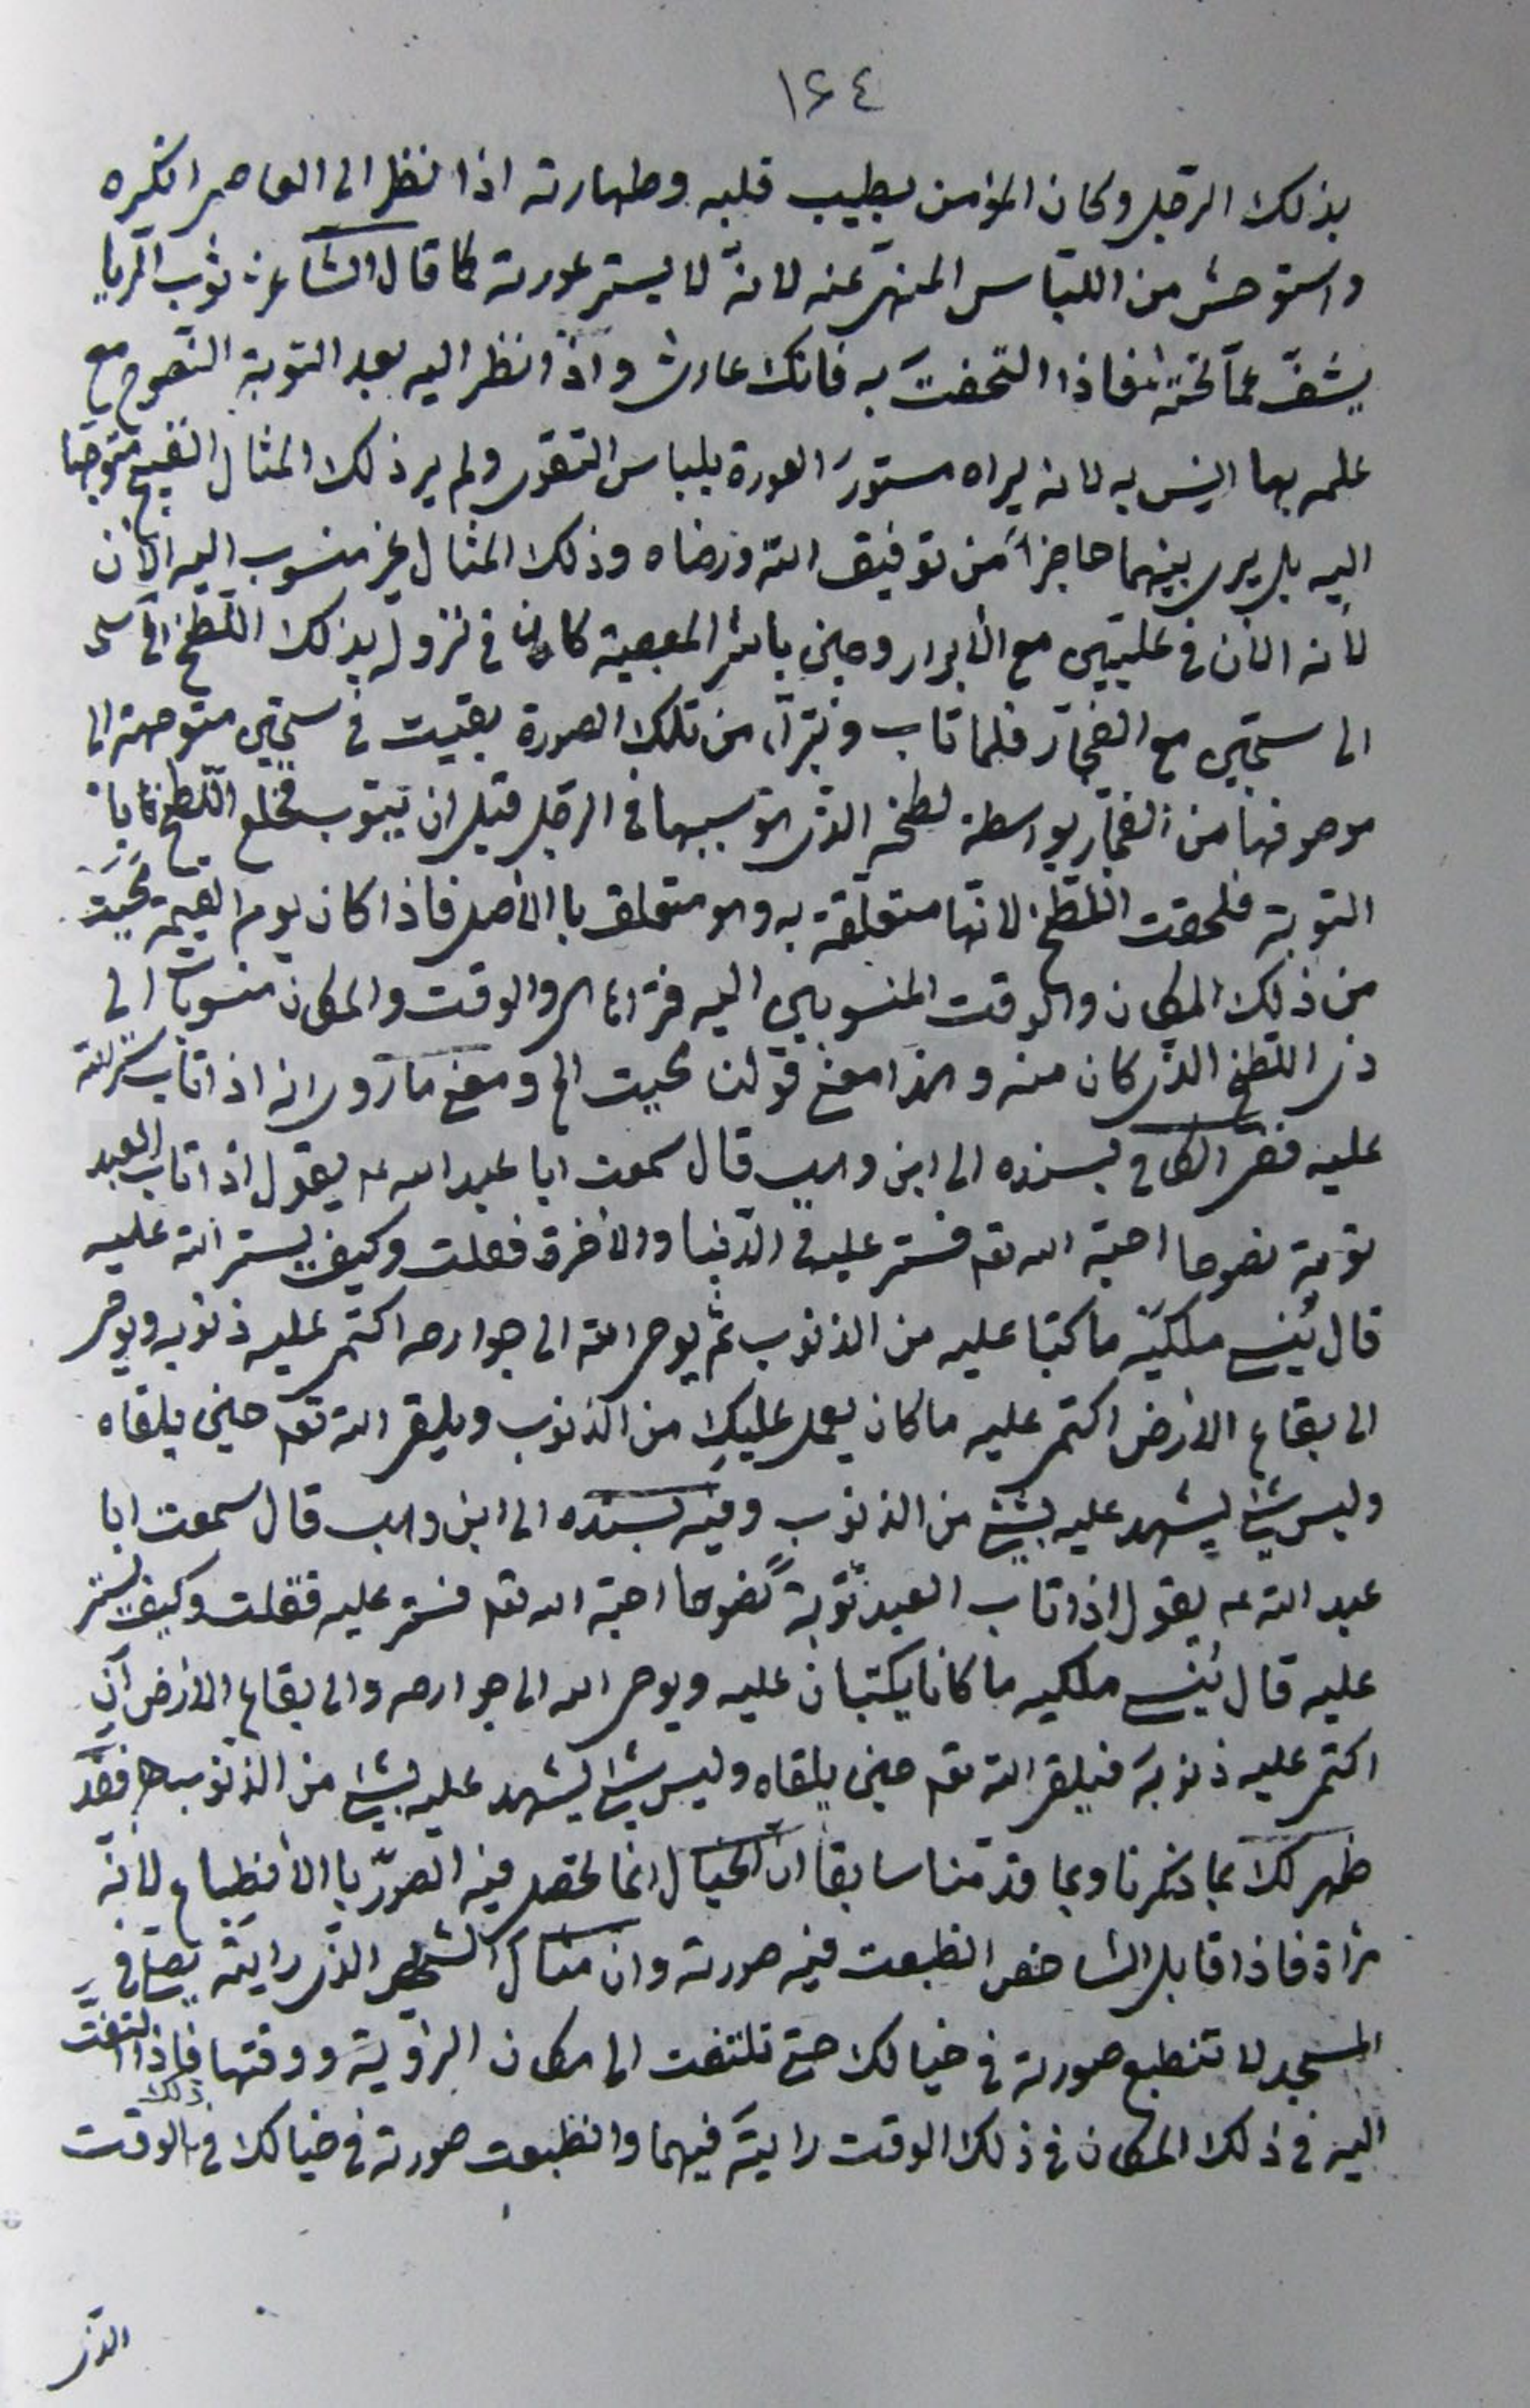 ١٦٤
بذلك الرجل وكان المؤمن بطيب قلبه وطهارته اذا نظر الى العاصى انكره
واستوحش من اللباس المنهى عنه لانّه لا يستر عورته كما قال الشاعر ثوب الريا
يشفّ عمّا تحته فاذا التحفتَ به فانك عارى واذا نظر اليه بعد التوبة النصوح مع
علمه بها انِس به لانه يراه مستورَ العورة بلباس التقوى ولم ير ذلك المثال القبيح متوجها
اليه بل يرى بينهما حاجزاً من توفيق الله ورضاه وذلك المثال غير منسوب اليه الآن
لأنه الآن فى علّيّين مع الأبرار وحين باشر المعصية كان فى نزوله بذلك اللطخ
الى سجّين مع الفجّار فلما تاب وتبرّأ من تلك الصورة بقيت فى سجّين متوجهة الى
موصوفها من الفجّار بواسطة لطخه الذى هو سببها فى الرجل قبل ان يتوب فخلع اللطخ
التوبة فلحقت اللطخ لانها متعلّقة به وهو متعلق بالأصل فاذا كان يوم القيمة محيت
من ذلك المكان والوقت المنسوبين اليه والوقت والمكان منسوبات الى
ذى اللطخ الذى كان منه وهذا معنى قولنا محيت الخ ومعنى ما روى انه اذا تاب ستر الله
عليه ففى الكافى بسنده الى ابن وهب قال سمعت ابا عبد الله ع يقول اذا تاب العبد
توبة نصوحا احبّه الله تع فستر عليه فى الدّنيا والأخرة فقلت وكيف يستر الله عليه
قال يُنسى ملكيّه ما كتبا عليه من الذنوب ثمّ يوحى الله الى جوارحه اكتمى عليه ذنوبه ويوحى
الى بقاع الارض اكتمى عليه ما كان يعمل عليكِ من الذنوب ويلقى الله تع حين يلقاه
وليس شئ يشهد عليه بشئ من الذنوب وفيه بسنده الى ابن وهب قال سمعت ابا
عبد الله ع يقول اذا تاب العبد توبةً نصوحا احبّه الله تع فستر عليه فقلت وكيف يستر
عليه قال يُنسى ملكيه ما كانا يكتبان عليه ويوحى الله الى جوارحه والى بقاع الارض أن
اكتمى عليه ذنوبه فيلقى الله تع حين يلقاه وليس شئ يشهد عليه بشئ من الذنوب فقد
ظهر لك بما ذكرنا وبما قدّمنا سابقا انّ الخيال انما تحصل فيه الصوَر بالانطباع لانّه
مرآة فاذا قابل الشاخص انطبعت فيه صورته وان مثال الشخص الذى رايته يصلّى فى
المسجد لا تنطبع صورته فى خيالك حتى تلتفت الى مكان الرؤية ووقتها فاذا التفتّ
اليه فى ذلك المكان فى ذلك الوقت رايته فيهما وانطبعت صورته فى خيالك فى ذلك الوقت
الذى